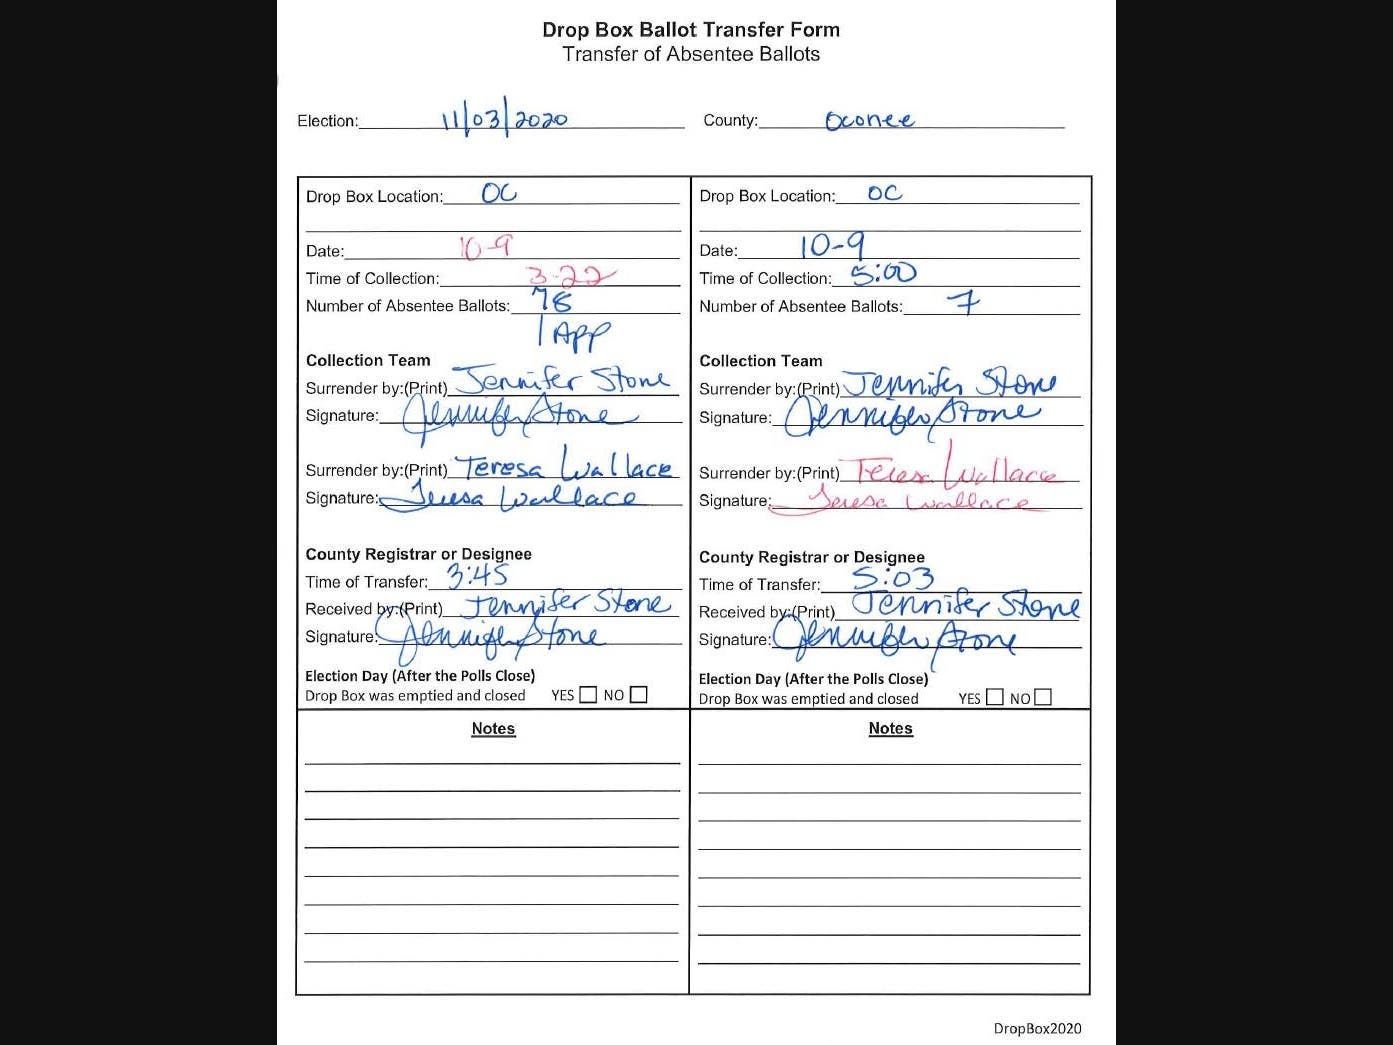 Drop Box Ballot Transfer Form
Transfer of Absentee Ballots
Election: 11/03/2020 County: Oconee
Drop Box Location: OC
Date: 10-9
Time of Collection: 3-22
Number of Absentee Ballots: 78
1 APP
Collection Team
Surrender by:(Print) Jennifer Stone
Signature: Jennifer Stone
Surrender by:(Print) Teresa Wallace
Signature: Teresa Wallace
County Registrar or Designee
Time of Transfer: 3:45
Received by:(Print) Jennifer Stone
Signature: Jennifer Stone
Election Day (After the Polls Close)
Drop Box was emptied and closed YES NO
Notes
Drop Box Location: OC
Date: 10-9
Time of Collection: 5:00
Number of Absentee Ballots: 7
Collection Team
Surrender by:(Print) Jennifer Stone
Signature: Jennifer Stone
Surrender by:(Print) Teresa Wallace
Signature: Teresa Wallace
County Registrar or Designee
Time of Transfer: 5:03
Received by:(Print) Jennifer Stone
Signature: Jennifer Stone
Election Day (After the Polls Close)
Drop Box was emptied and closed YES NO
Notes
DropBox2020